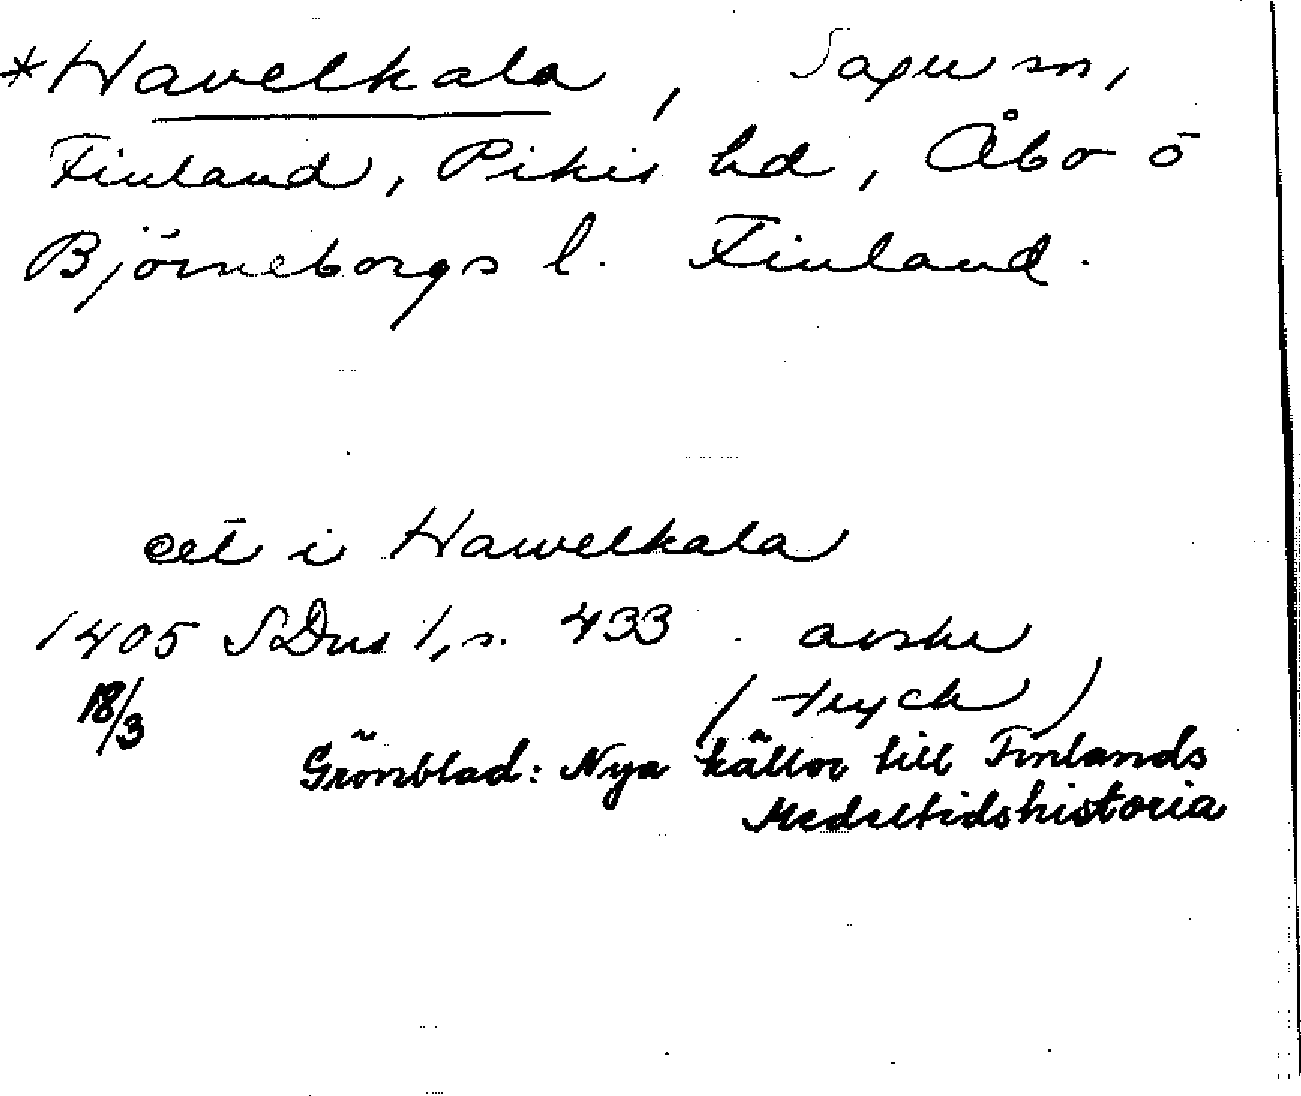 *Wavelkala, Sagu sn,
Finland, Pikis hd, Åbo o
Björneborgs l. Finland.
eet i Wawelkala
1405 SDns 1, s. 433. avskr
18/3 (tryck)
Grönblad: Nya källor till Finlands
Medeltidshistoria